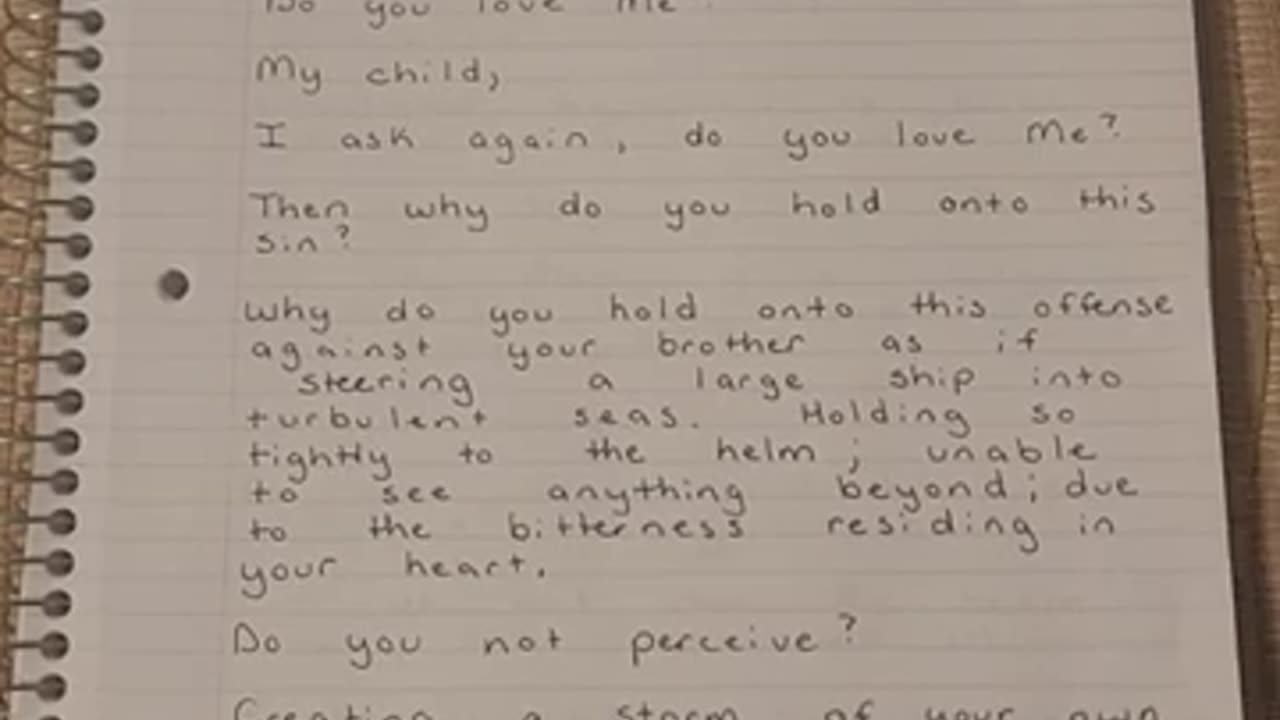 Do you love me
My child,
I ask again, do you love Me?
Then why do you hold onto this
sin?
Why do you hold onto this offense
against your brother as if
steering a large ship into
turbulent seas. Holding so
tightly to the helm; unable
to see anything beyond; due
to the bitterness residing in
your heart.
Do you not perceive?
Creating a storm of your own